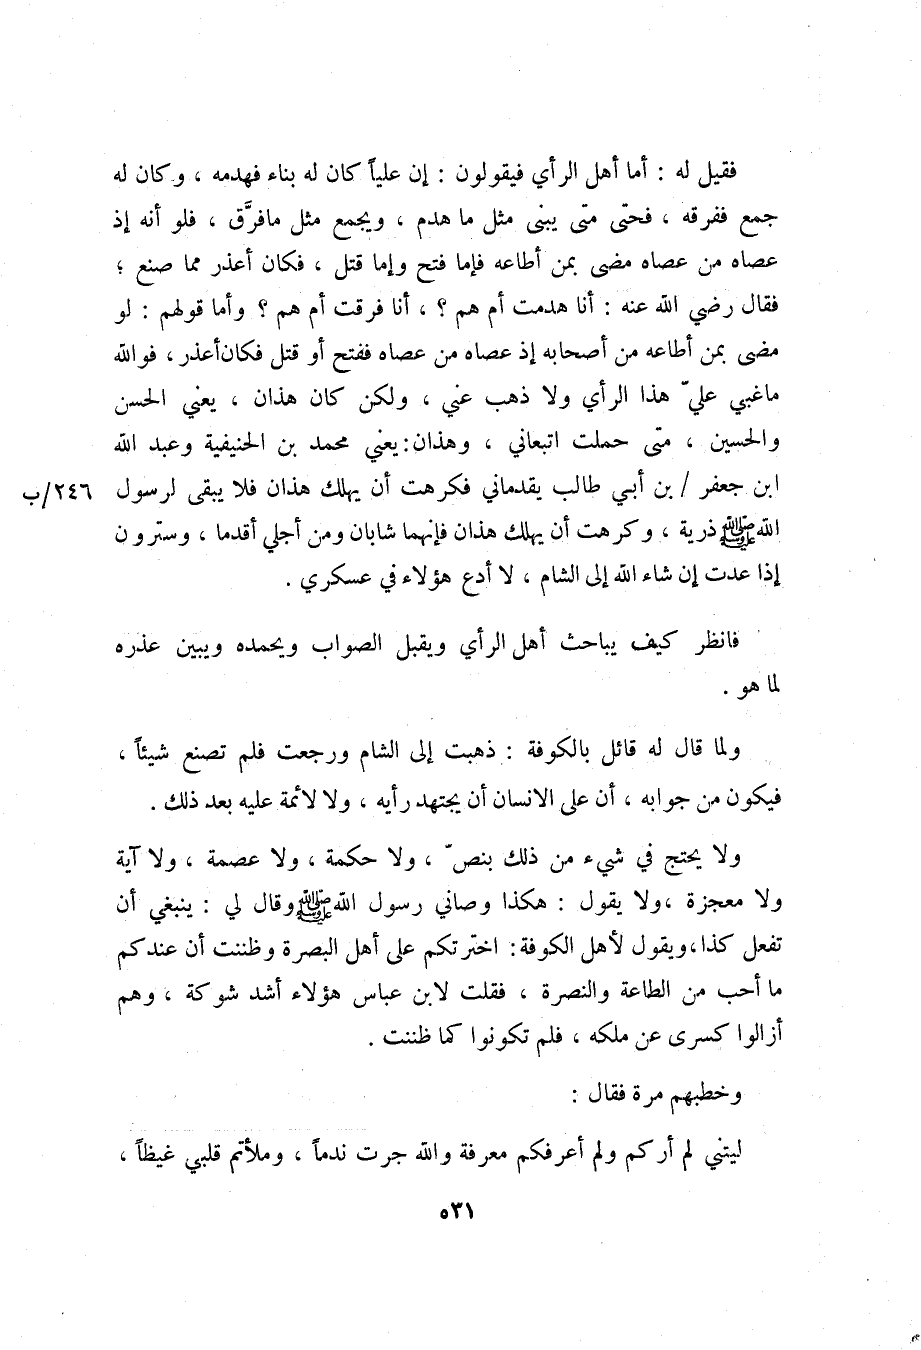 فقيل له : أما أهل الرأي فيقولون : إن علياً كان له بناء فهدمه ، وكان له
جمع ففرقه ، فحتّى متى يبنى مثل ما هدم ، ويجمع مثل مافرَّق ، فلو أنه إذ
عصاه من عصاه مضى بمن أطاعه فإما فتح وإما قتل ، فكان أعذر مما صنع ؛
فقال رضي الله عنه : أنا هدمت أم هم ؟ ، أنا فرقت أم هم ؟ وأما قولهم : لو
مضى بمن أطاعه من أصحابه إذ عصاه من عصاه ففتح أو قتل فكان أعذر ، فوالله
ماغبي عليّ هذا الرأي ولا ذهب عني ، ولكن كان هذان ، يعني الحسن
والحسين ، متى حملت اتبعاني ، وهذان : يعني محمد بن الحنيفية وعبد الله
ابن جعفر / بن أبي طالب يقدماني فكرهت أن يهلك هذان فلا يبقى لرسول ٢٤٦/ب
الله ﷺ ذرية ، وكرهت أن يهلك هذان فإنهما شابان ومن أجلي أقدما ، وسترون
إذا عدت إن شاء الله إلى الشام ، لا أدع هؤلاء في عسكري .
فانظر كيف يباحث أهل الرأي ويقبل الصواب ويحمده ويبين عذره
لما هو .
ولما قال له قائل بالكوفة : ذهبت إلى الشام ورجعت فلم تصنع شيئاً ،
فيكون من جوابه ، أن على الانسان أن يجتهد رأيه ، ولا لائمة عليه بعد ذلك .
ولا يحتج في شيء من ذلك بنصّ ، ولا حكمة ، ولا عصمة ، ولا آية
ولا معجزة ،ولا يقول : هكذا وصاني رسول الله ﷺ وقال لي : ينبغي أن
تفعل كذا ،ويقول لأهل الكوفة : اخترتكم على أهل البصرة وظننت أن عندكم
ما أحب من الطاعة والنصرة ، فقلت لابن عباس هؤلاء أشد شوكة ، وهم
أزالوا كسرى عن ملكه ، فلم تكونوا كما ظننت .
وخطبهم مرة فقال :
ليتني لم أركم ولم أعرفكم معرفة والله جرت ندماً ، وملأتم قلبي غيظاً ،
٥٣١